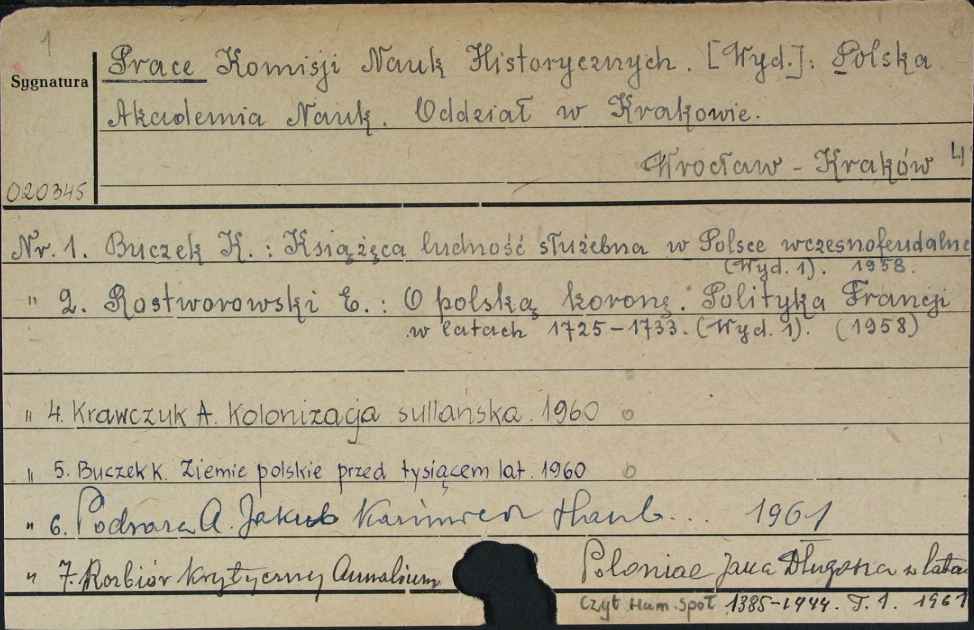 1
Sygnatura
Prace Komisji Nauk Historycznych. [Wyd.]: Polska
Akademia Nauk. Oddział w Krakowie.
Wrocław - Kraków 4
020345
Nr. 1. Buczek K.: Książęca ludność służebna w Polsce wczesnofeudalne
(Wyd. 1). 1958.
" 2. Rostworowski E.: O polską koronę. Polityka Francji
w latach 1725-1733. (Wyd. 1). (1958)
" 4. Krawczuk A. Kolonizacja sullańska. 1960
" 5. Buczek K. Ziemie polskie przed tysiącem lat. 1960
" 6. Podraza A. Jakub Kazimierz Haub... 1961
" 7. Rozbiór krytyczny Annalium Poloniae Jana Długosza z lata
Czyt. Hum. Społ 1385-1444. T. 1. 1961